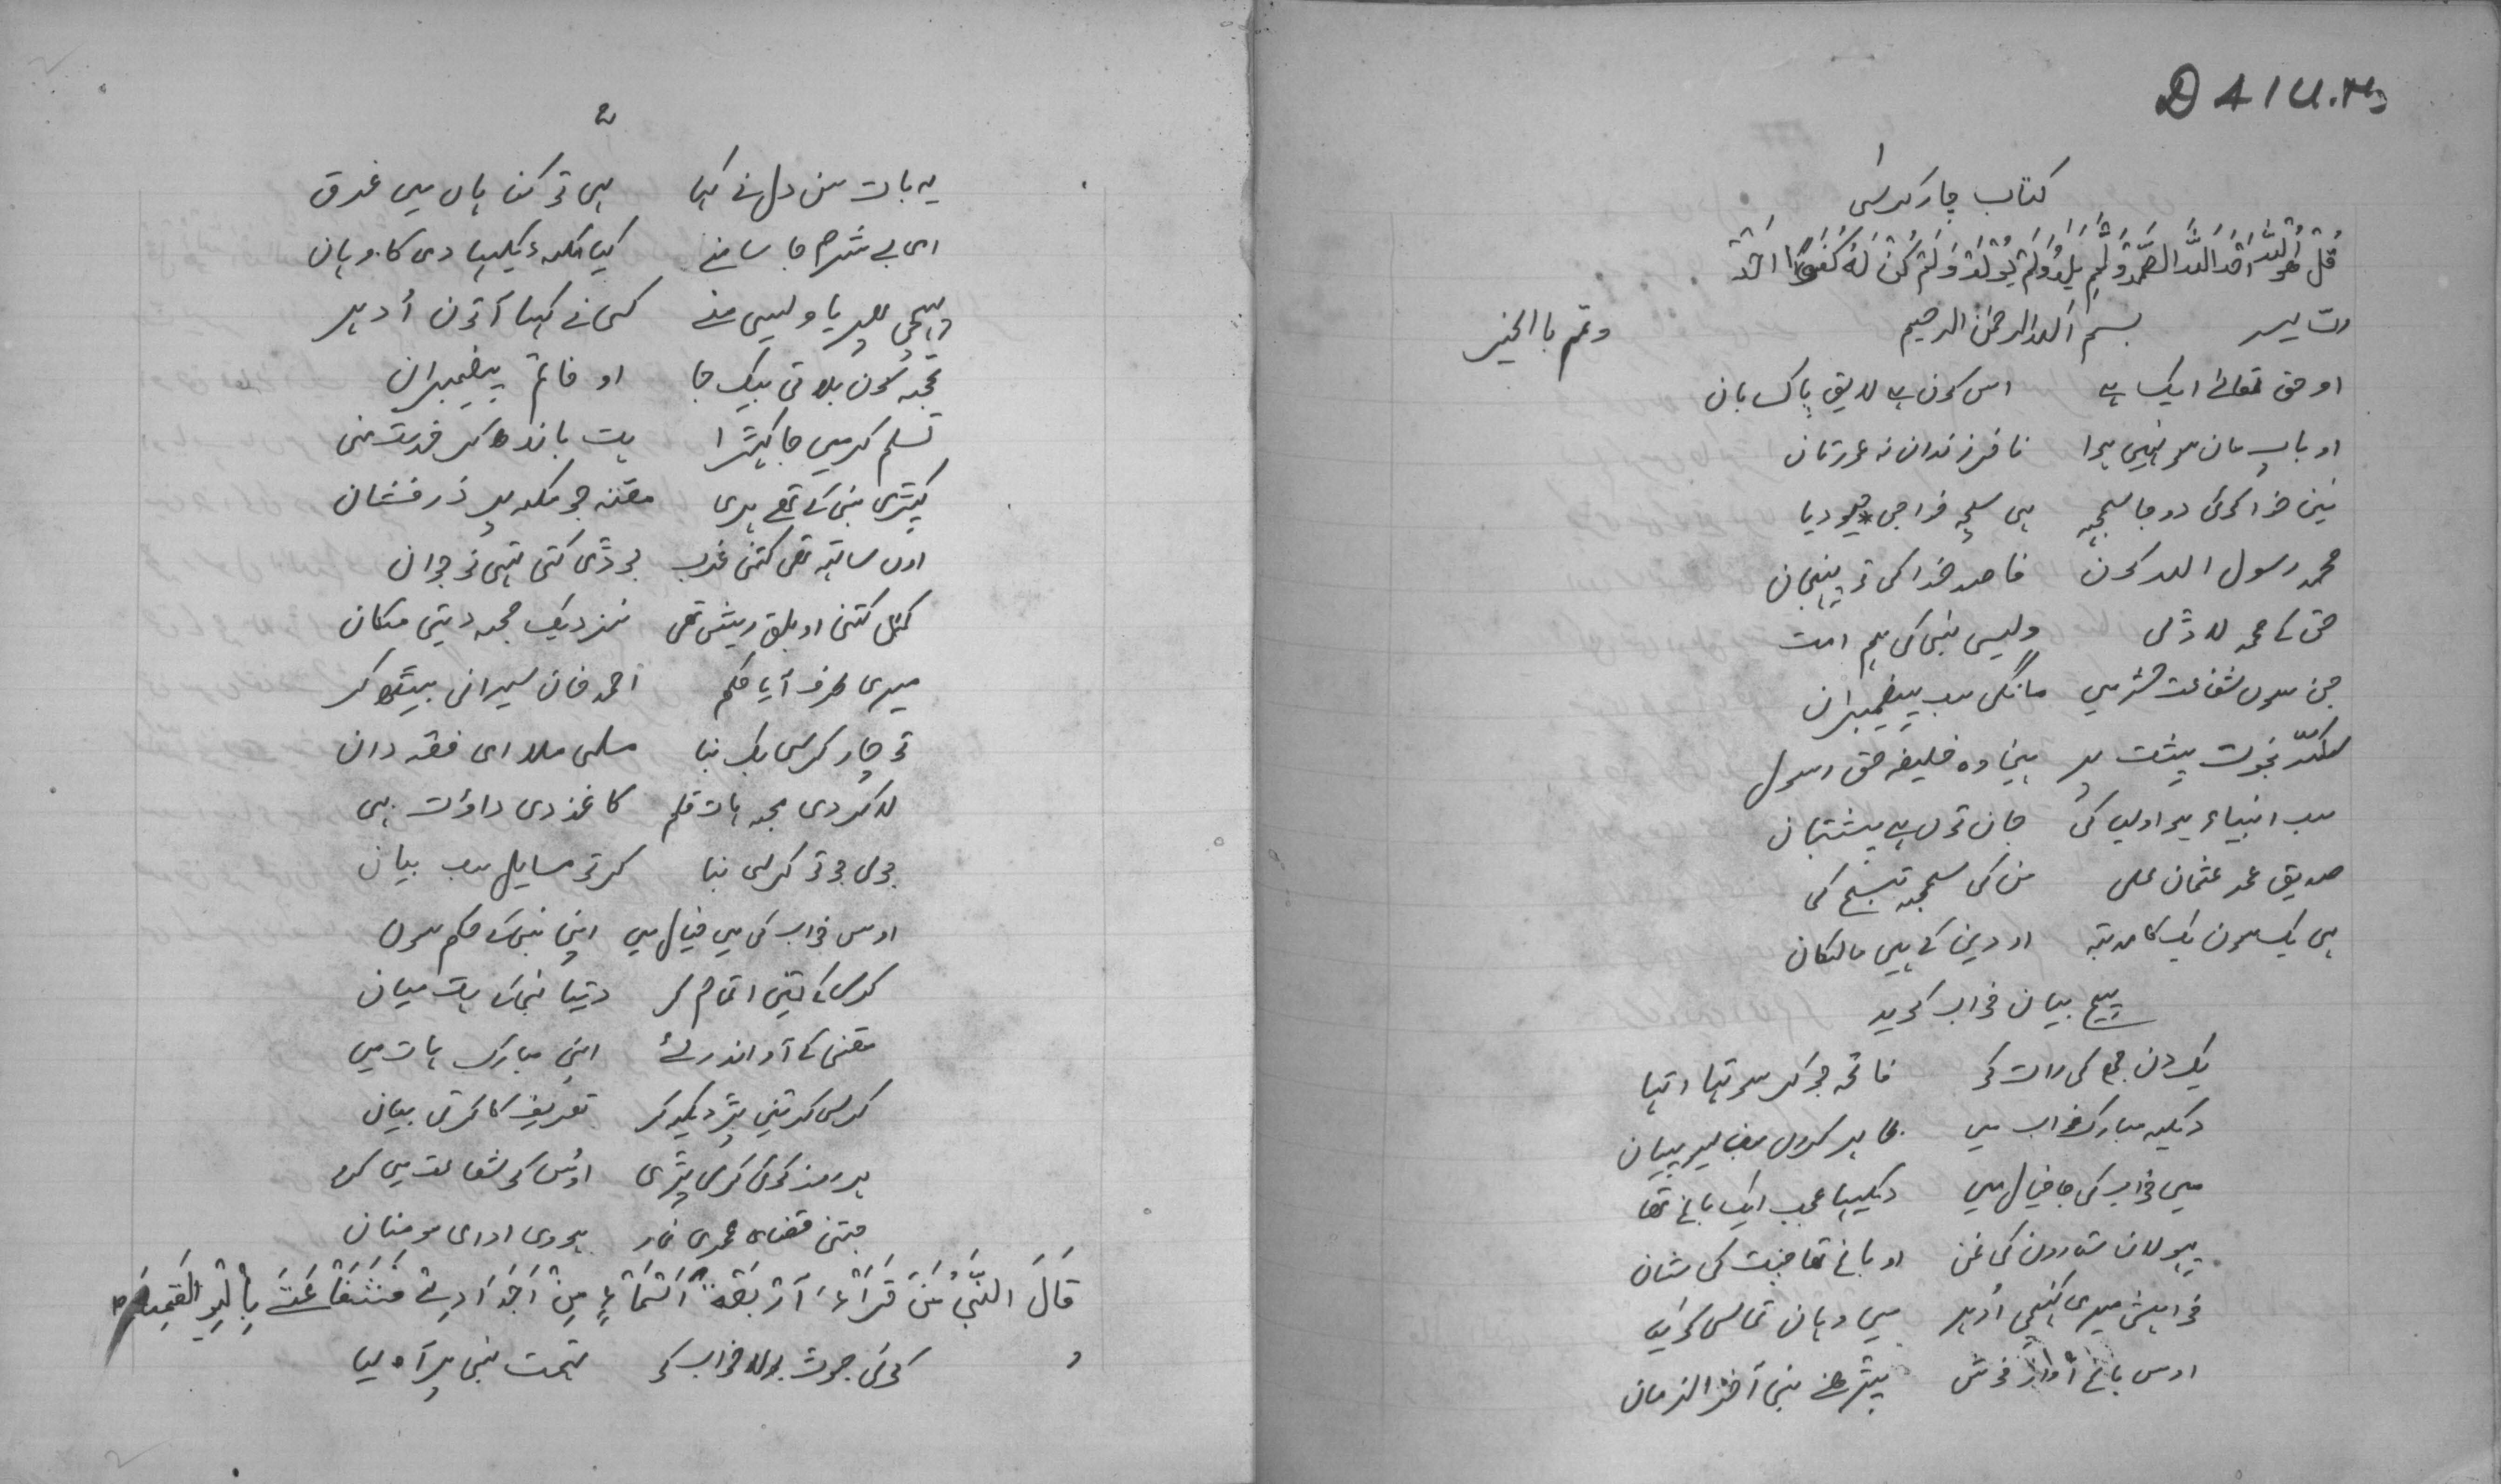 D 41 U.Ms
۱
کتاب چار کرسی
قل هو الله احد الله الصمد و لم یلد و لم یولد و لم کن له کفوا احد
بسم الله الرحمن الرحیم وتمم با الخیر
او حق تعالے ایک ہے اس کون ہے لایق پاک بان
او باپ مان سو نہیں ہوا نا فرزندان نہ عورتان
نین خدا کوئی دوجا سمجہ ہی سچہ خدا جی جیو دیا
محمد رسول اللہ کون قاصد خدا کی تو پہنچان
حق کے محمد لاڈلی ولیسی نبی کی ہم امت
جن سون شفاعت حشر میں مانگی سب پیغمبران
نبوت پیشت پر خلیفہ حق رسول
سب انبیاء پر اولیہ کی جان تون ہے پشتبان
صدیق عمر عثمان علی من کی سمجہ تسبیح کی
ہی یک سون یک کا مرتبہ او دین کے ہیں مالکان
پیچ بیان خواب گوید
یک دن جمع کی رات کو فاتحہ جو کر سوتہا اتہا
دیکہہ مبارک خواب میں ظاہر کرون بیان
میں خواب کی جا خیال میں دیکہیا عجب ایک باغ تھا
پہولان ستارون کی نمن او باغ تھا جنت کی شان
خواہش میری اُدہر میں وہان تماسی کو گیا
اوس باغ آواز خوش بیٹھے نبی آخر الزمان
۲
یہ بات سن دل نے کہا ہی تو کنا ہاں میں غرق
ای بے شرم جا سامنے کیا مکہہ دیکہیا دی کا وہان
کسی نے کہا آتون اُدہر
تجہہ کون بلاتی بیگ جا او خاتم پیغمبران
تسلم کر میں جا کہڑا ہت باندہ کر خدمت منی
کہڑی نبی کے تھے ہری مقنہ جو مکہہ پر ذر فشان
اوں ساتہہ تھی کتنی غرب بوڈی کتی تہی نوجوان
کہل کتنی او بلق ریش تھی نزدیک مجہہ دیتی مکان
میری طرف آیا حکم احمد خان سیرانی بیٹہہ کر
تو چار کرسی یک بنا مسلمی ملا ای فقہ دان
لا کر دی مجہہ ہات قلم کاغذ دی داؤت ہی
بولی جو تو کرسی بنا کر تو مسایل سب بیان
اوس خواب کی میں خیال میں اپنی نبی کے حکم سون
کرسی کے تئیں اتمام کر دیتیا نبی کے ہات میان
مقنی کے آواندر لئے اپنی مبارک ہات میں
کرسی کرتئیں پڑ دیکہہ کر تعریف کا کرتی بیان
ہر روز کوئی کرسی پڑی اوس کو شفاعت میں کرو
جتنی قضای عمری نماز ہووی ادا ای مومنان
قَالَ النَّبِیُّ مَنْ قَرَاءَ اَرْبَعَةَ اَسْمَاءٍ مِنْ اَجْدَادِیْ فَشَفَاعَتَ بِالیَوْ القِمَیٰم
کوئی جھوٹ بولا خواب کو تہمت نبی پر آو لیا